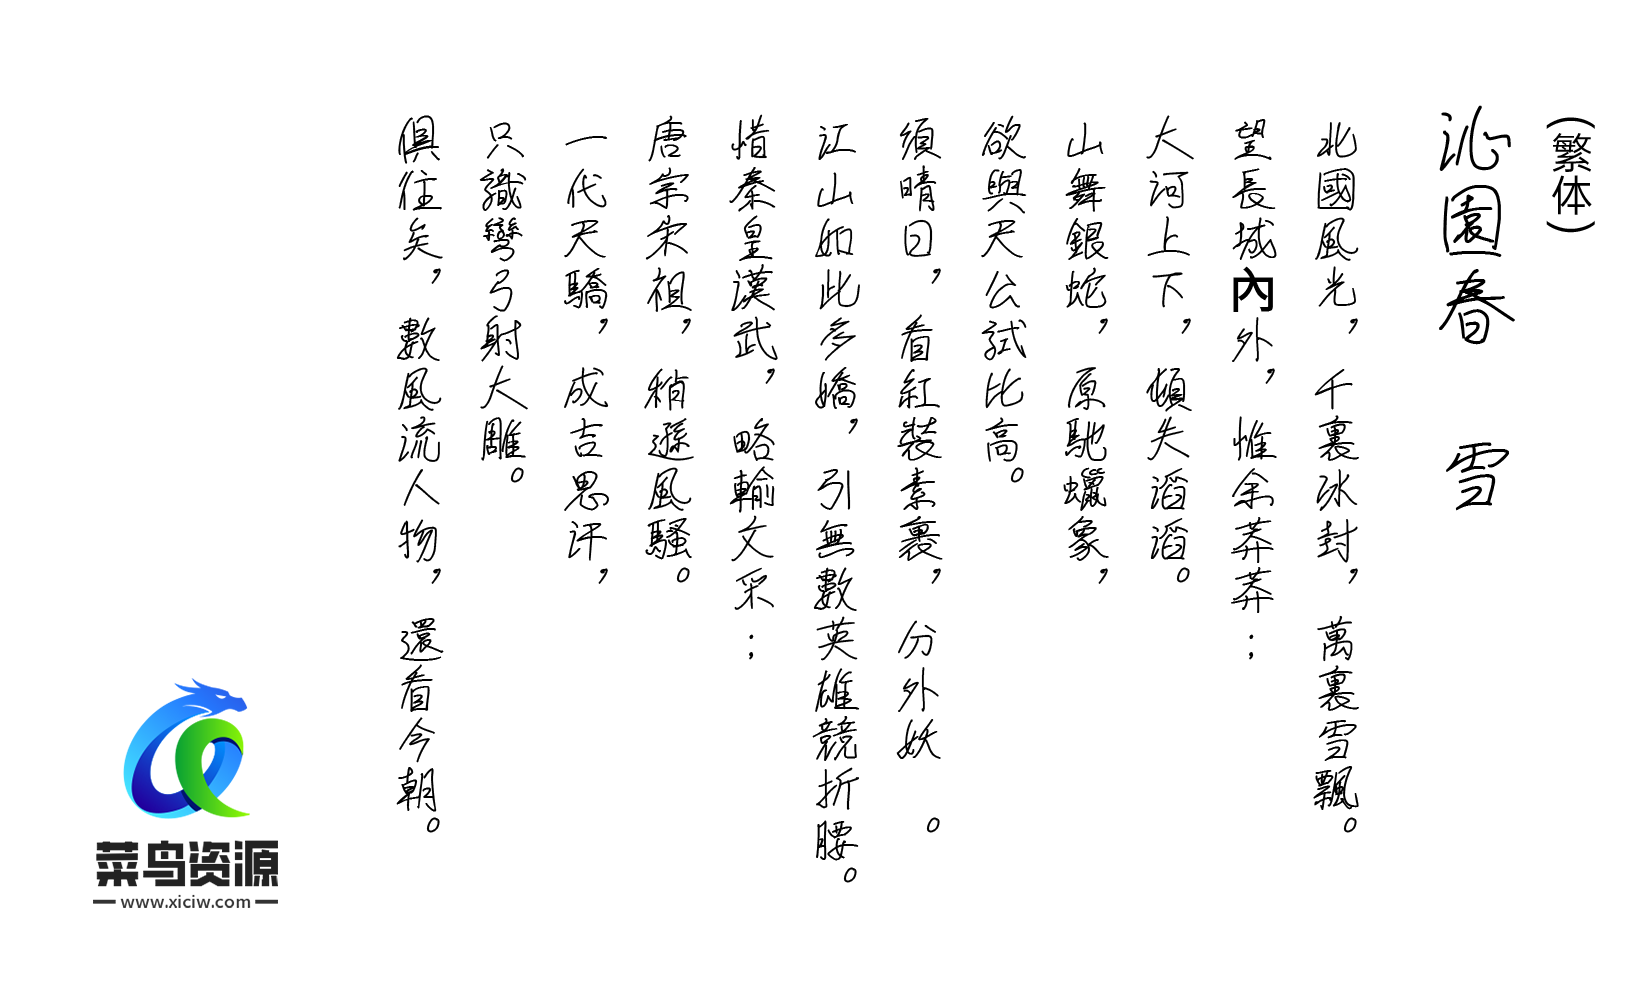 (繁体)
沁園春 雪
北國風光，千裏冰封，萬裏雪飄。
望長城內外，惟余莽莽；
大河上下，頓失滔滔。
山舞銀蛇，原馳蠟象，
欲與天公試比高。
須晴日，看紅裝素裹，分外妖 。
江山如此多嬌，引無數英雄競折腰。
惜秦皇漢武，略輸文采；
唐宗宋祖，稍遜風騷。
一代天驕，成吉思汗，
只識彎弓射大雕。
俱往矣，數風流人物，還看今朝。
菜鸟资源
www.xiciw.com